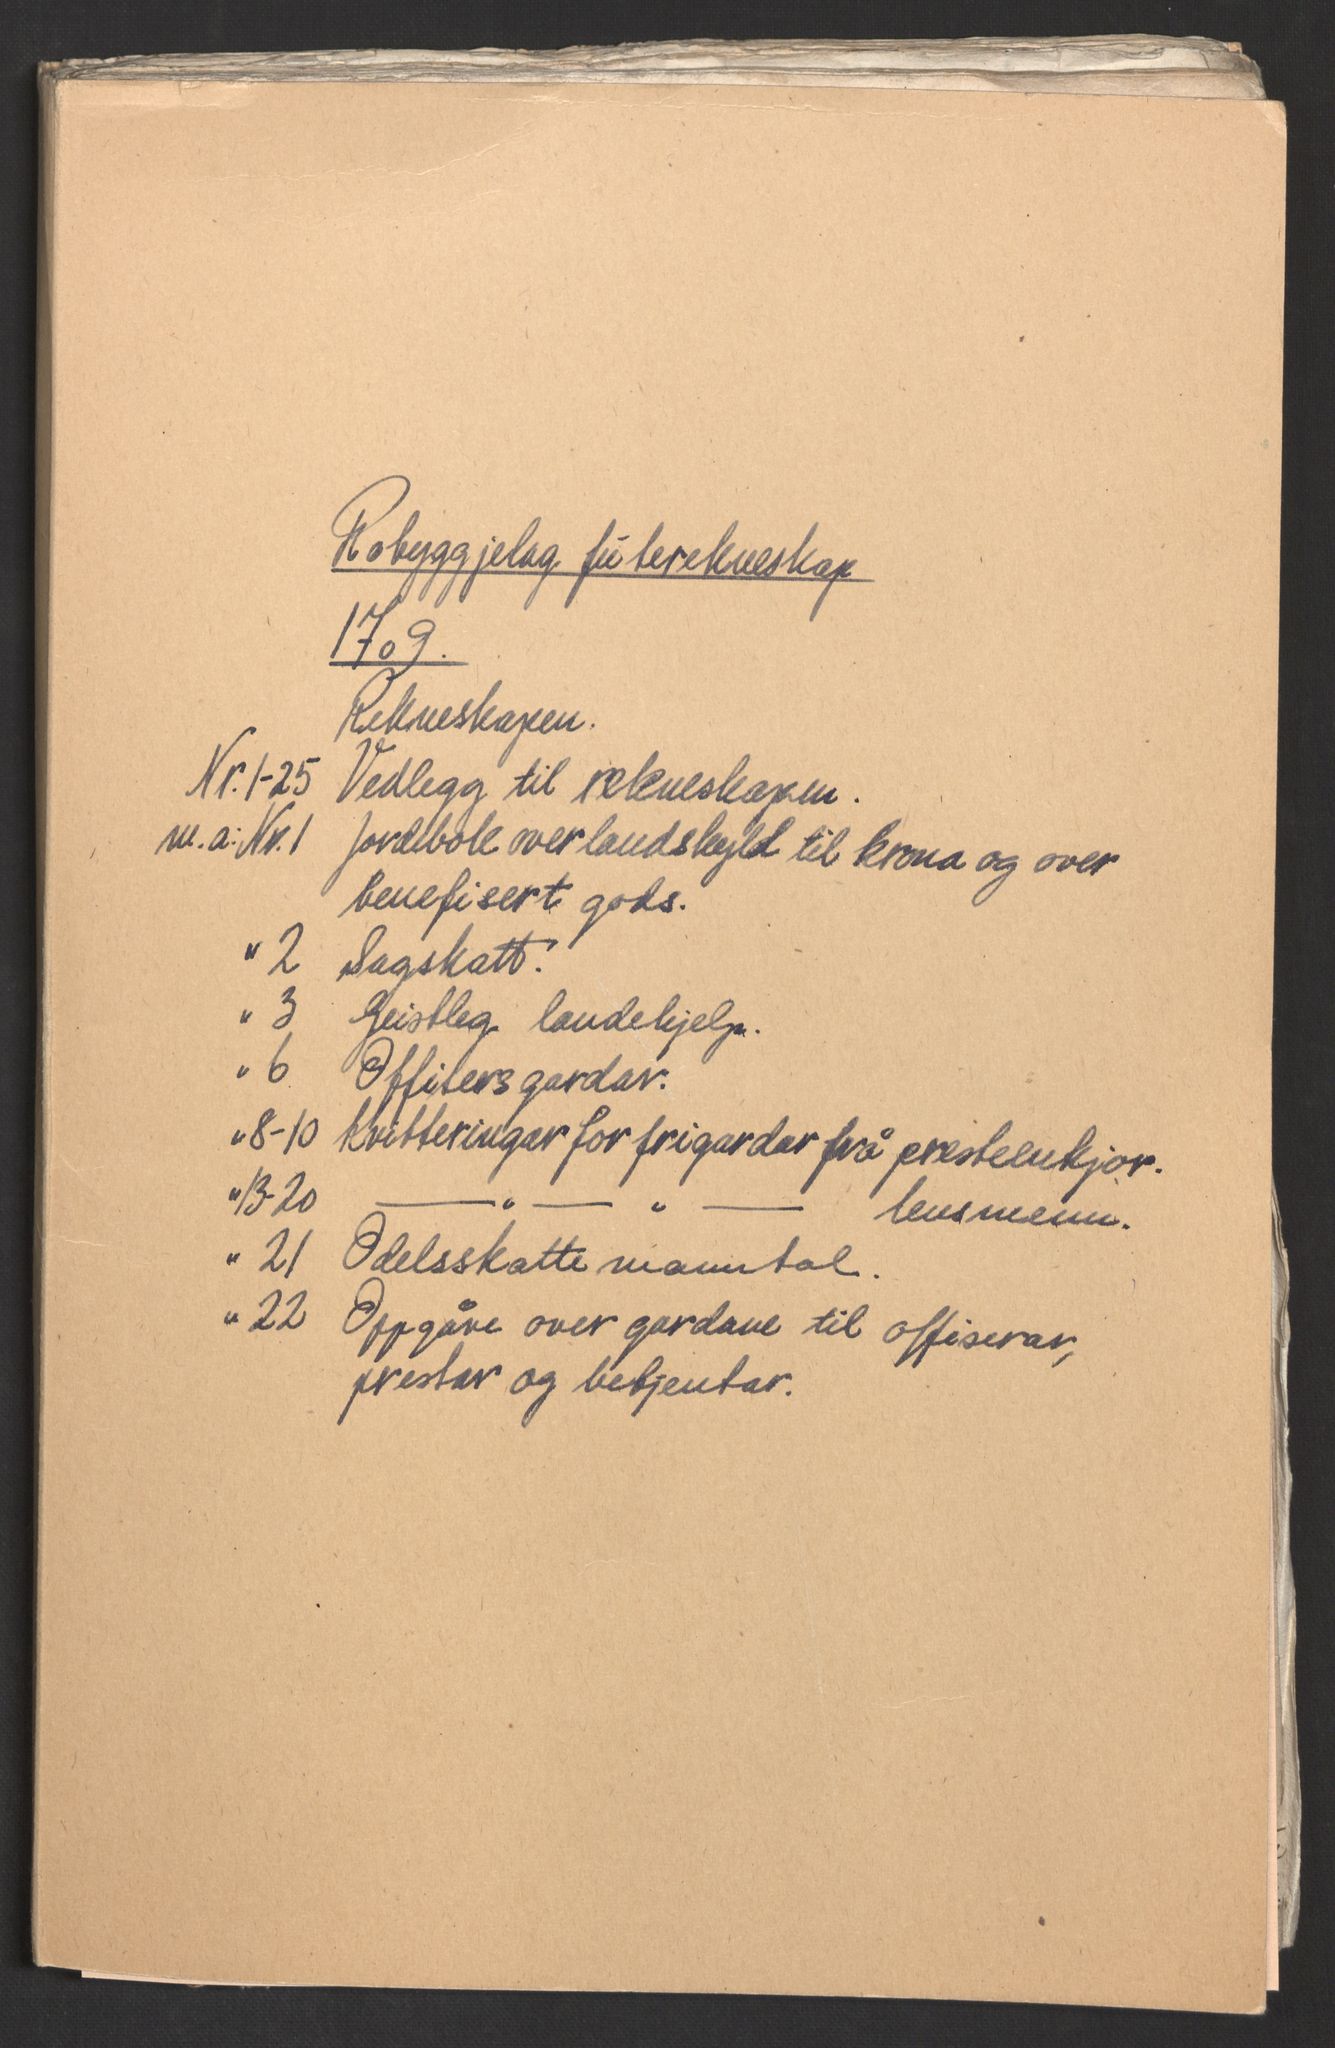 Robyggjelag futerekneskap
1709.
Rekneskapen.
Nr. 1-25 Vedlegg til rekneskapen.
m.a: Nr. 1 Jordebok over landskyld til krona og over
benefisert gods.
" 2 Sagskatt.
" 3 Geistleg landehjelp.
" 6 Offisersgardar.
" 8-10 Kvitteringar for frigardar frå prestenkjor.
" 13-20 — " — " — lensmenn.
" 21 Odelsskattemanntal.
" 22 Oppgåve over gardane til offiserar,
prestar og betjentar.